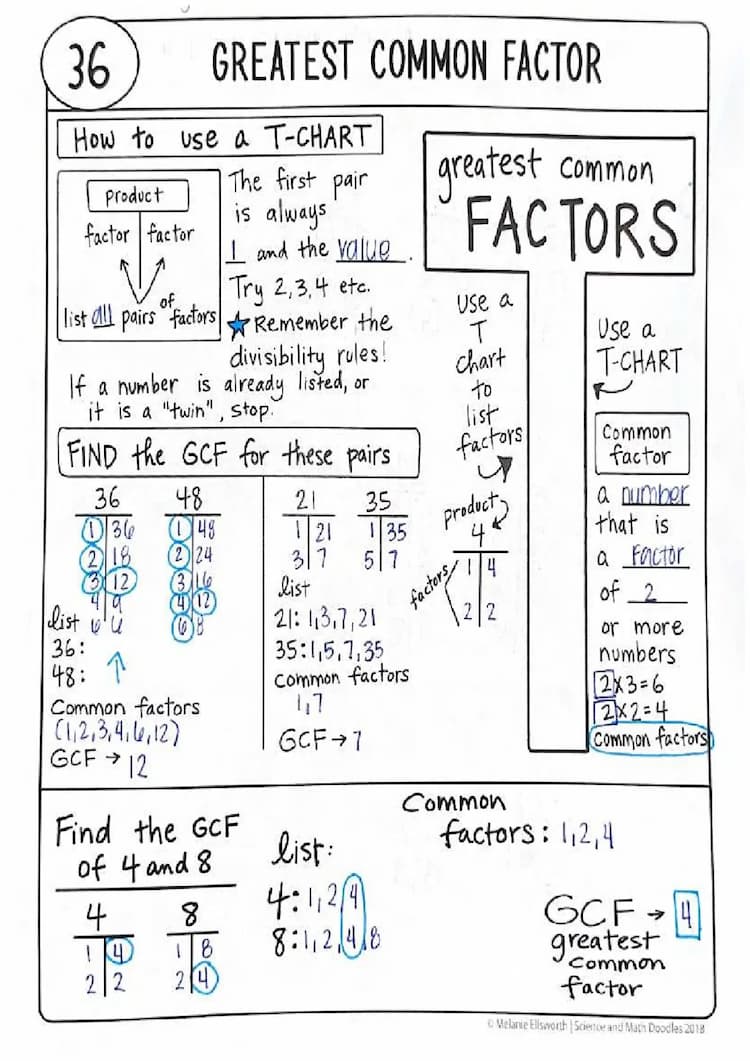 36
GREATEST COMMON FACTOR
HOW to use a T-CHART
product
factor | factor
list all pairs of factors
The first pair
is always
1 and the value.
Try 2,3,4 etc.
★ Remember the
divisibility rules!
If a number is already listed, or
it is a "twin", stop.
FIND the GCF for these pairs
36
1 | 36
2 | 18
3 | 12
4 | 9
6 | 6
48
1 | 48
2 | 24
3 | 16
4 | 12
6 | 8
list
36:
48:
Common factors
(1,2,3,4,6,12)
GCF → 12
21
1 | 21
3 | 7
35
1 | 35
5 | 7
list
21: 1,3,7,21
35: 1,5,7,35
common factors
1,7
GCF → 7
greatest common
FACTORS
USE a
T
chart
to
list
factors
product
4
1 | 4
2 | 2
factors
USE a
T-CHART
Common
factor
a number
that is
a Factor
of 2
or more
numbers
2x3=6
2x2=4
Common factors
Find the GCF
of 4 and 8
4
1 | 4
2 | 2
8
1 | 8
2 | 4
list:
4: 1, 2, 4
8: 1, 2, 4, 8
Common
factors: 1,2,4
GCF → 4
greatest
common
factor
© Melanie Ellsworth | Science and Math Doodles 2018